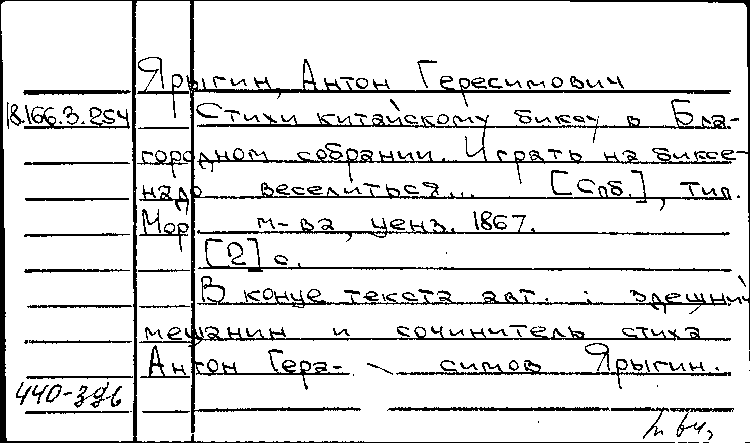 Ярыгин, Антон Гересимович
18.166.3.254
Стихи китайскому биксу в Бла-
городном собрании. Играть на биксе-
надо веселиться... [Спб.], тип.
Мор. м-ва, ценз. 1867.
[2] с.
В конце текста авт.: здешний
мещанин и сочинитель стиха
Антон Гера- симов Ярыгин.
440-396